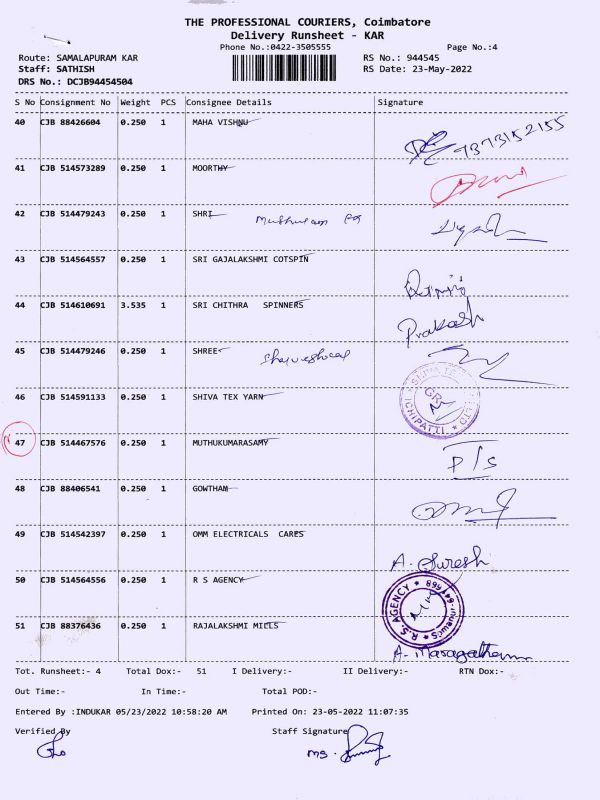 THE PROFESSIONAL COURIERS, Coimbatore
Delivery Runsheet - KAR
Phone No.:0422-3505555 Page No.:4
Route: SAMALAPURAM KAR RS No.: 944545
Staff: SATHISH RS Date: 23-May-2022
DRS No.: DCJB94454504
S No Consignment No Weight PCS Consignee Details Signature
40 CJB 88426604 0.250 1 MAHA VISHNU 7373152155
41 CJB 514573289 0.250 1 MOORTHY
42 CJB 514479243 0.250 1 SHRI
43 CJB 514564557 0.250 1 SRI GAJALAKSHMI COTSPIN
44 CJB 514610691 3.535 1 SRI CHITHRA SPINNERS Prakash
45 CJB 514479246 0.250 1 SHREE
46 CJB 514591133 0.250 1 SHIVA TEX YARN
N 47 CJB 514467576 0.250 1 MUTHUKUMARASAMY P/S
48 CJB 88406541 0.250 1 GOWTHAM
49 CJB 514542397 0.250 1 OMM ELECTRICALS CARES A. Suresh
50 CJB 514564556 0.250 1 R S AGENCY R.S. AGENCY
51 CJB 88376436 0.250 1 RAJALAKSHMI MILLS
Tot. Runsheet:- 4 Total Dox:- 51 I Delivery:- II Delivery:- RTN Dox:-
Out Time:- In Time:- Total POD:-
Entered By :INDUKAR 05/23/2022 10:58:20 AM Printed On: 23-05-2022 11:07:35
Verified By Staff Signature